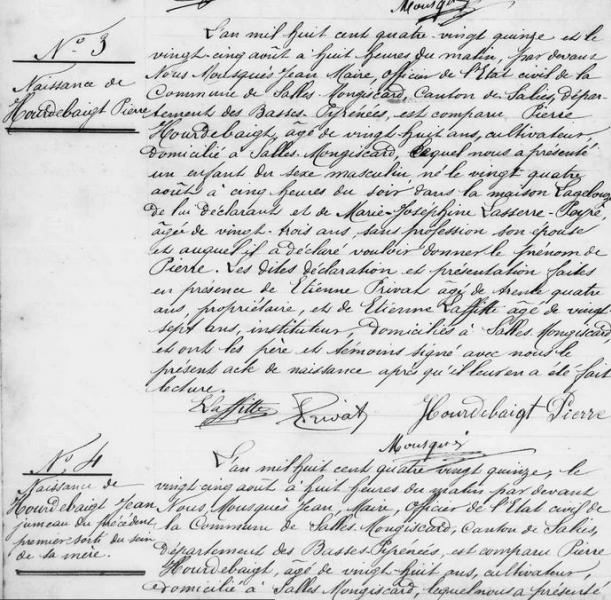 Mousqués
N° 3
Naissance de
Hourdebaigt Pierre
L'an mil huit cent quatre vingt quinze et le
vingt-cinq août à huit heures du matin, par devant
Nous Mousqués Jean Maire, officier de l'Etat civil de la
Commune de Salles Mongiscard, Canton de Salies, dépar-
tement des Basses-Pyrénées, est comparu Pierre
Hourdebaigt, âgé de vingt-huit ans, cultivateur,
domicilié à Salles-Mongiscard, lequel nous a présenté
un enfant du sexe masculin, né le vingt quatre
août à cinq heures du soir dans la maison
de lui déclarant et de Marie-Joséphine Lasserre-
âgée de vingt-trois ans, sans profession son épouse
et auquel il a déclaré vouloir donner le prénom de
Pierre. Les dites déclaration et présentation faites
en présence de Etienne Privat âgé de trente quatre
ans, propriétaire, et de Etienne Laffitte âgé de vingt
sept ans, instituteur, domiciliés à Salles-Mongiscard
et ont les père et témoins signé avec nous le
présent acte de naissance après qu'il leur en a été fait
lecture.
Laffitte Privat Hourdebaigt Pierre
Mousqués
N° 4
Naissance de
Hourdebaigt Jean
jumeau du précédent
premier sorti du sein
de sa mère.
L'an mil huit cent quatre vingt quinze, le
vingt cinq août à huit heures du matin par devant
Nous, Mousqués Jean, Maire, officier de l'Etat civil de
la Commune de Salles-Mongiscard, Canton de Salies,
Département des Basses-Pyrénées, est comparu Pierre
Hourdebaigt, âgé de vingt-huit ans, cultivateur,
domicilié à Salles Mongiscard, lequel nous a présenté